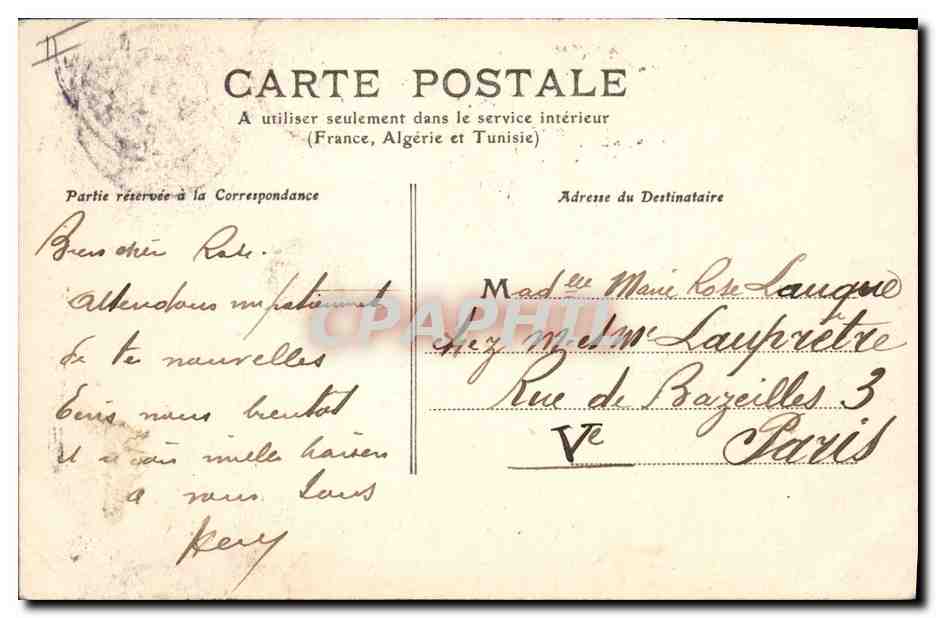 II
CARTE POSTALE
A utiliser seulement dans le service intérieur
(France, Algérie et Tunisie)
Partie réservée à la Correspondance
Adresse du Destinataire
Bien chère Rose.
Attendons impatiemment
de tes nouvelles
Ecris nous bientot
et reçois mille baisers
a nous tous
Madelle Marie Rose Laugue
Chez M. et Me Lauprêtre
Rue de Bazeilles 3
Ve Paris
CPAPHIL